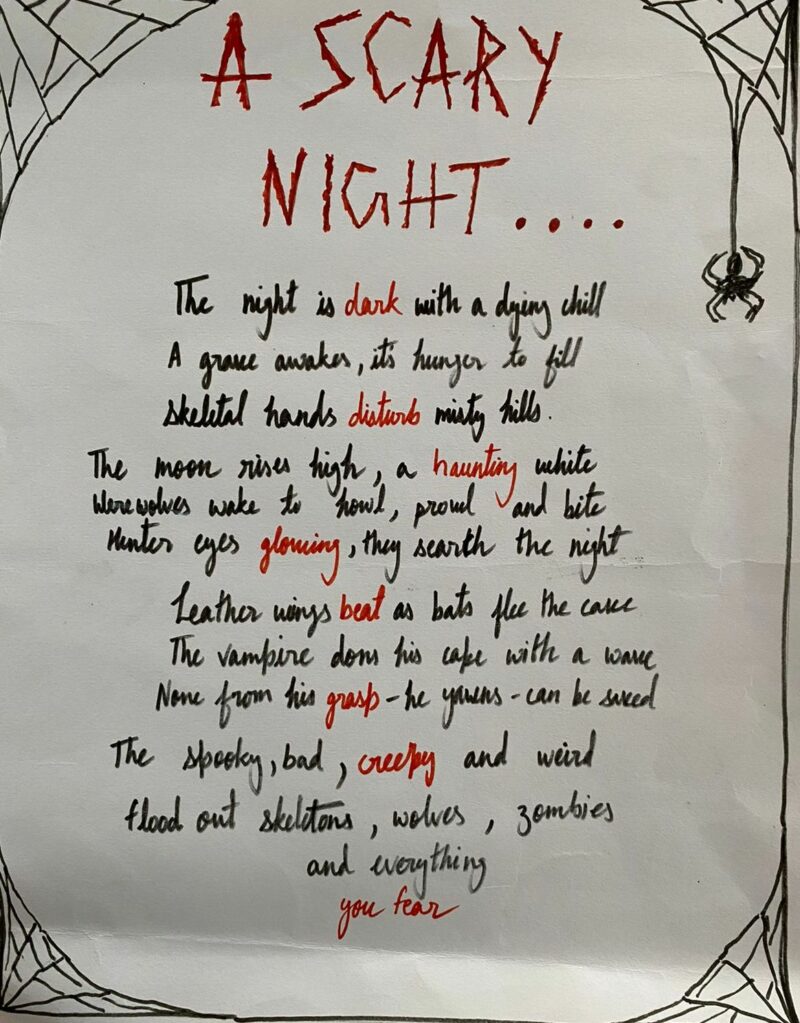 A SCARY
NIGHT....
The night is dark with a dying chill
A grave awakes, its hunger to fill
Skeletal hands disturb misty hills.
The moon rises high, a haunting white
Werewolves wake to howl, prowl and bite
Hunter eyes glowing, they search the night
Leather wings beat as bats flee the cave
The vampire dons his cape with a wave
None from his grasp - he yawns - can be saved
The spooky, bad, creepy and weird
flood out skeletons, wolves, zombies
and everything
you fear